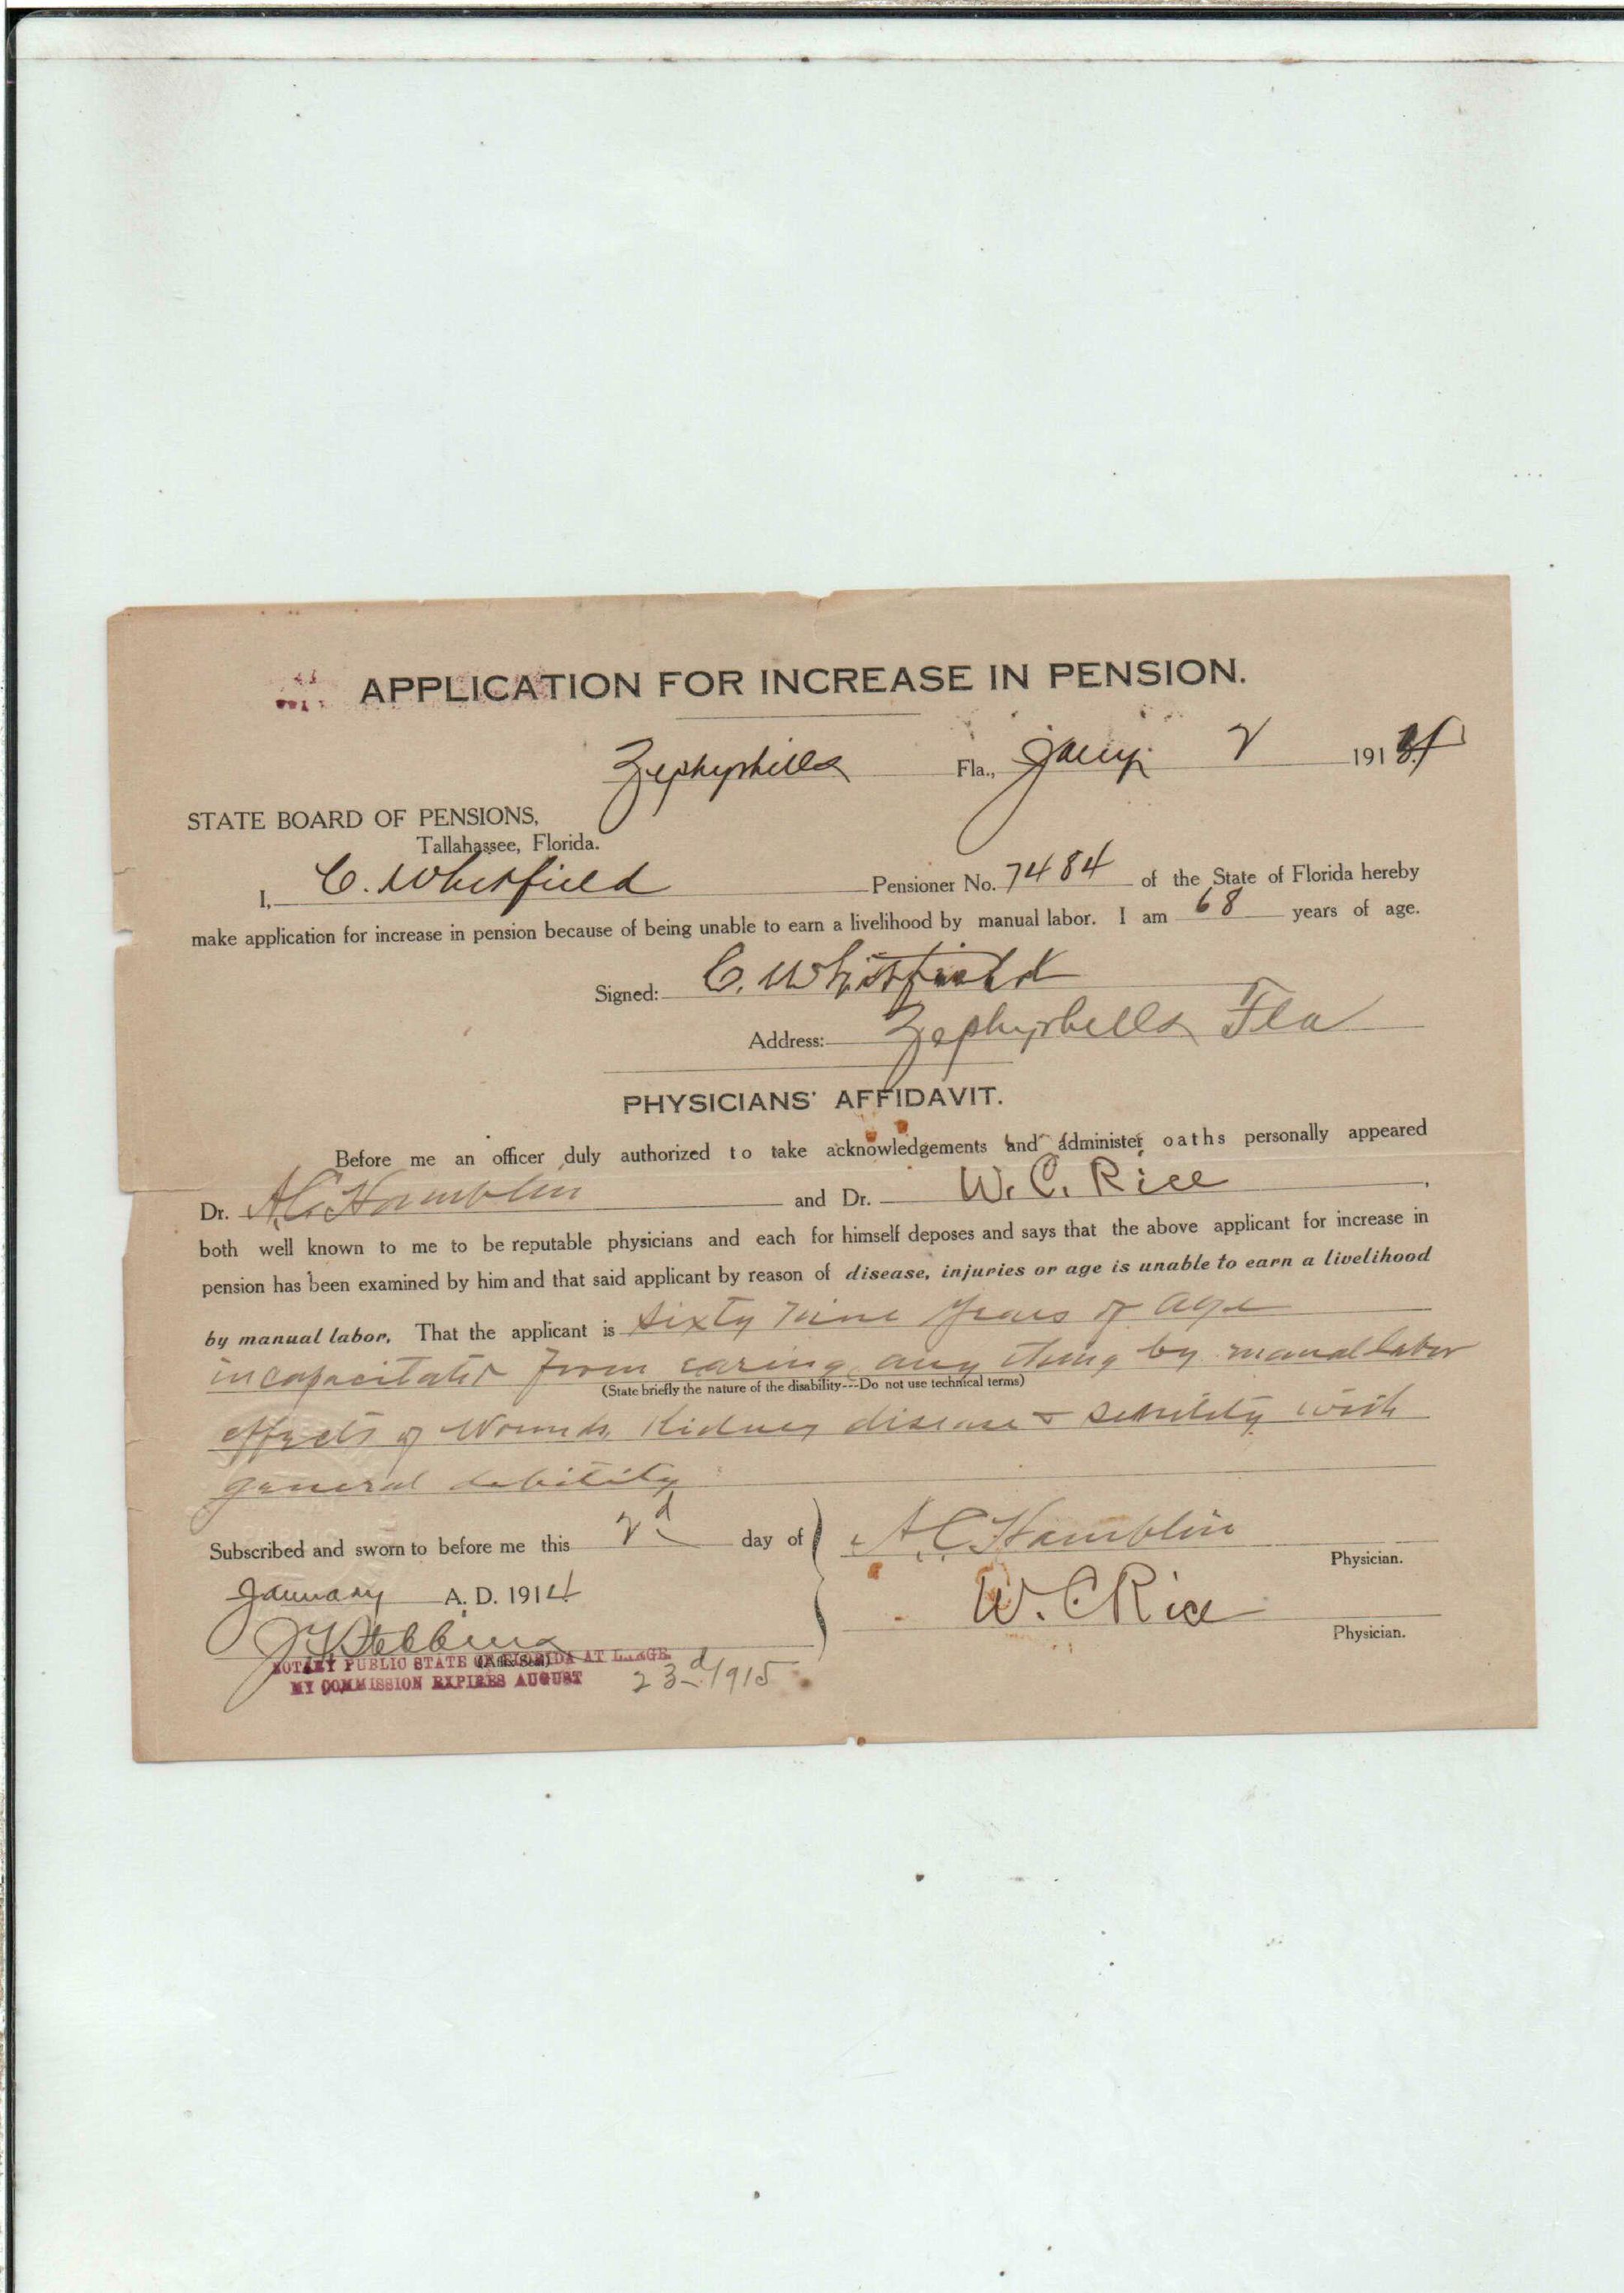 APPLICATION FOR INCREASE IN PENSION.
Zephyrhills Fla., Jany. 2 1914
STATE BOARD OF PENSIONS,
Tallahassee, Florida.
I, C. Whitfield Pensioner No. 7484 of the State of Florida hereby
make application for increase in pension because of being unable to earn a livelihood by manual labor. I am 68 years of age.
Signed: C. Whitfield
Address: Zephyrhills Fla
PHYSICIANS' AFFIDAVIT.
Before me an officer duly authorized to take acknowledgements and administer oaths personally appeared
Dr. A.C. Hamblin and Dr. W. C. Rice,
both well known to me to be reputable physicians and each for himself deposes and says that the above applicant for increase in
pension has been examined by him and that said applicant by reason of disease, injuries or age is unable to earn a livelihood
by manual labor. That the applicant is Sixty nine years of age
incapacitated from earing any thing by manual labor
(State briefly the nature of the disability---Do not use technical terms)
effects of Wounds, Kidney disease & senility with
general debility
Subscribed and sworn to before me this 2d day of A. C. Hamblin
Physician.
January A. D. 1914 W. C. Rice
Physician.
J Stebbins
(Affix Seal)
NOTARY PUBLIC STATE OF FLORIDA AT LARGE
MY COMMISSION EXPIRES AUGUST 23d 1915